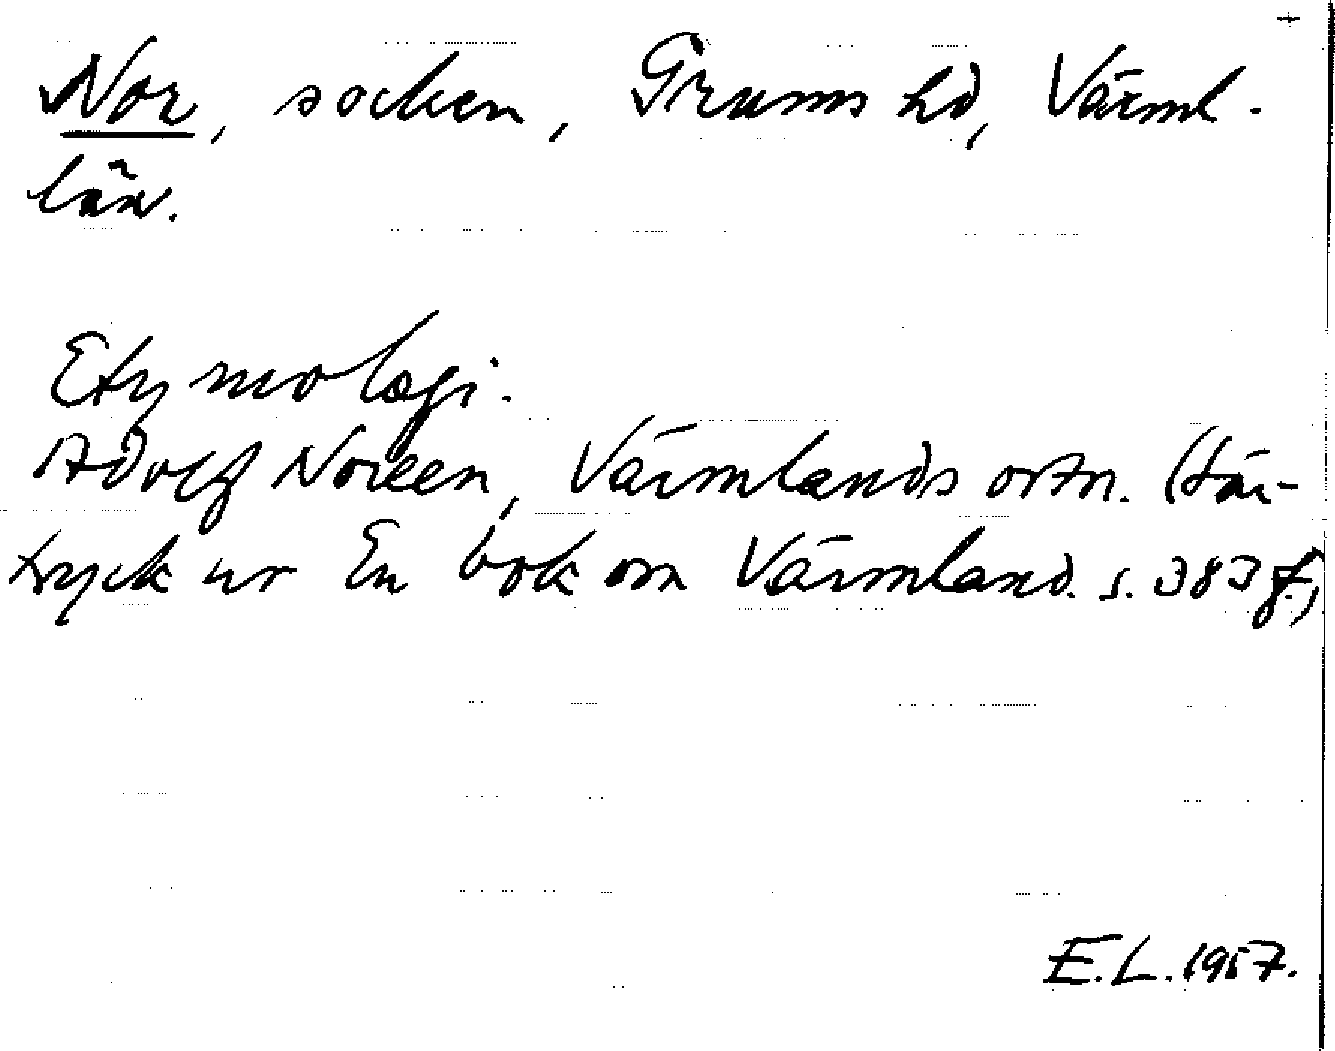 +
Nor, socken, Grums hd, Värml.
län.
Etymologi.
Adolf Noreen, Värmlands ortn. (Sär-
tryck ur En bok om Värmland. s. 383 f.,
E.L. 1957.